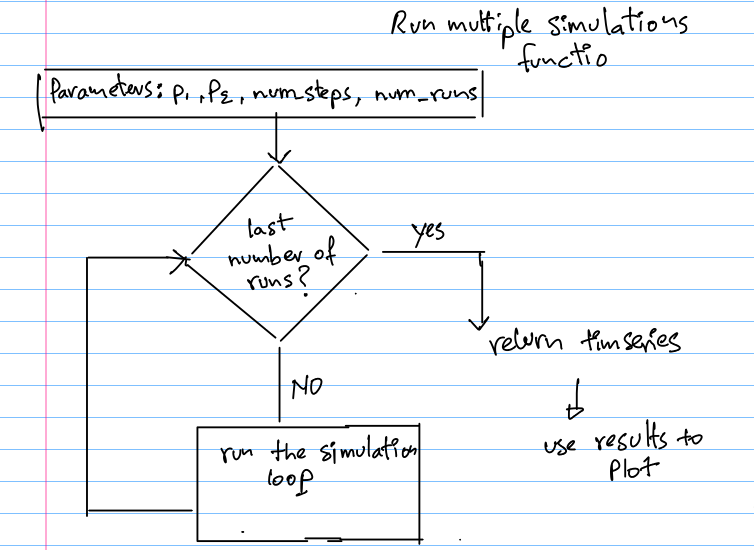 Run multiple simulations
functio
Parameters: P1, P2, num steps, num_runs
last
number of
runs?
yes
return timseries
use results to
Plot
NO
run the simulation
loop